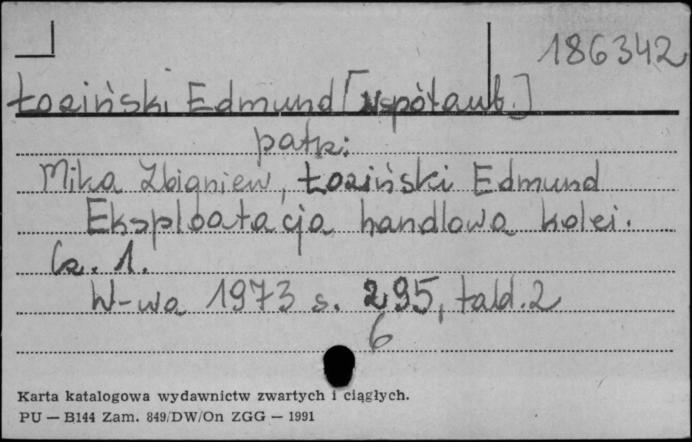 186342
Łoziński Edmund [współaut.]
patrz:
Mika Zbigniew, Łoziński Edmund
Eksploatacja handlowa kolei.
Cz. 1.
W-wa 1973 s. 295, tabl. 2
6
Karta katalogowa wydawnictw zwartych i ciągłych.
PU — B144 Zam. 849/DW/On ZGG — 1991